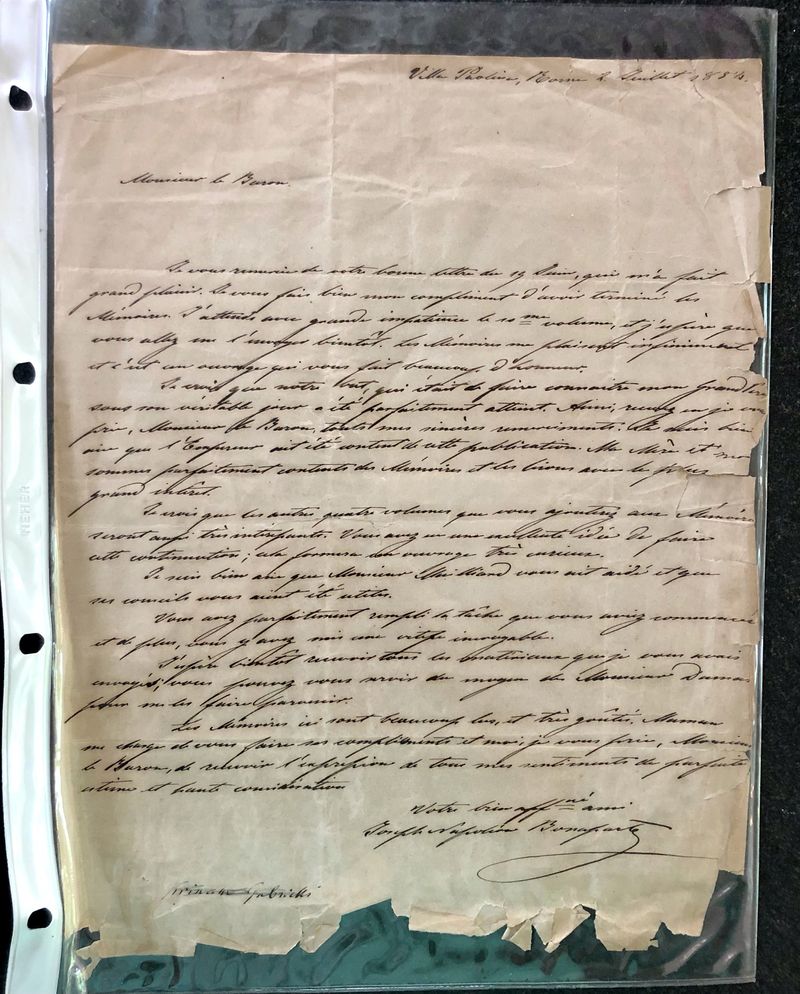 Villa Paolina, Rome 2 Juillet 1854.
Monsieur le Baron.
Je vous remercie de votre bonne lettre du 19 Juin, qui m'a fait
grand plaisir. Je vous fais bien mon compliment d'avoir terminé les
Mémoires. J'attends avec grande impatience le 10me volume, et j'espère que
vous allez me l'envoyer bientôt. Les Mémoires me plaisent infiniment
et c'est un ouvrage qui vous fait beaucoup d'honneur.
Je crois que notre but, qui était de faire connaître mon Grand
sous son véritable jour a été parfaitement atteint. Ainsi, recevez en je
prie, Monsieur le Baron, toutes mes sincères remerciments. Je suis bien
aise que l'Empereur ait été content de cette publication. Ma Mère et
sommes parfaitement contents des Mémoires et les lisons avec le plus
grand intérêt.
Je crois que les autres quatre volumes que vous ajoutez aux
seront aussi très intéressants. Vous avez eu une excellente idée de faire
cette continuation; cela formera un ouvrage très curieux.
Je suis bien aise que Monsieur vous ait aidé et que
ses conseils vous aient été utiles.
Vous avez parfaitement rempli la tâche que vous aviez
et de plus, vous y avez mis une vitesse incroyable.
J'espère bientôt recevoir tous les matériaux que je vous avais
envoyés; vous pouvez vous servir du moyen de Monsieur Dumas
pour me les faire parvenir.
Les Mémoires ici sont beaucoup lus, et très goûtés. Maman
me charge de vous faire ses compliments et moi, je vous prie,
le Baron, de recevoir l'expression de tous mes sentiments de parfaite
estime et haute considération
Votre bien affné ami
Joseph Napoléon Bonaparte
Gabrielli